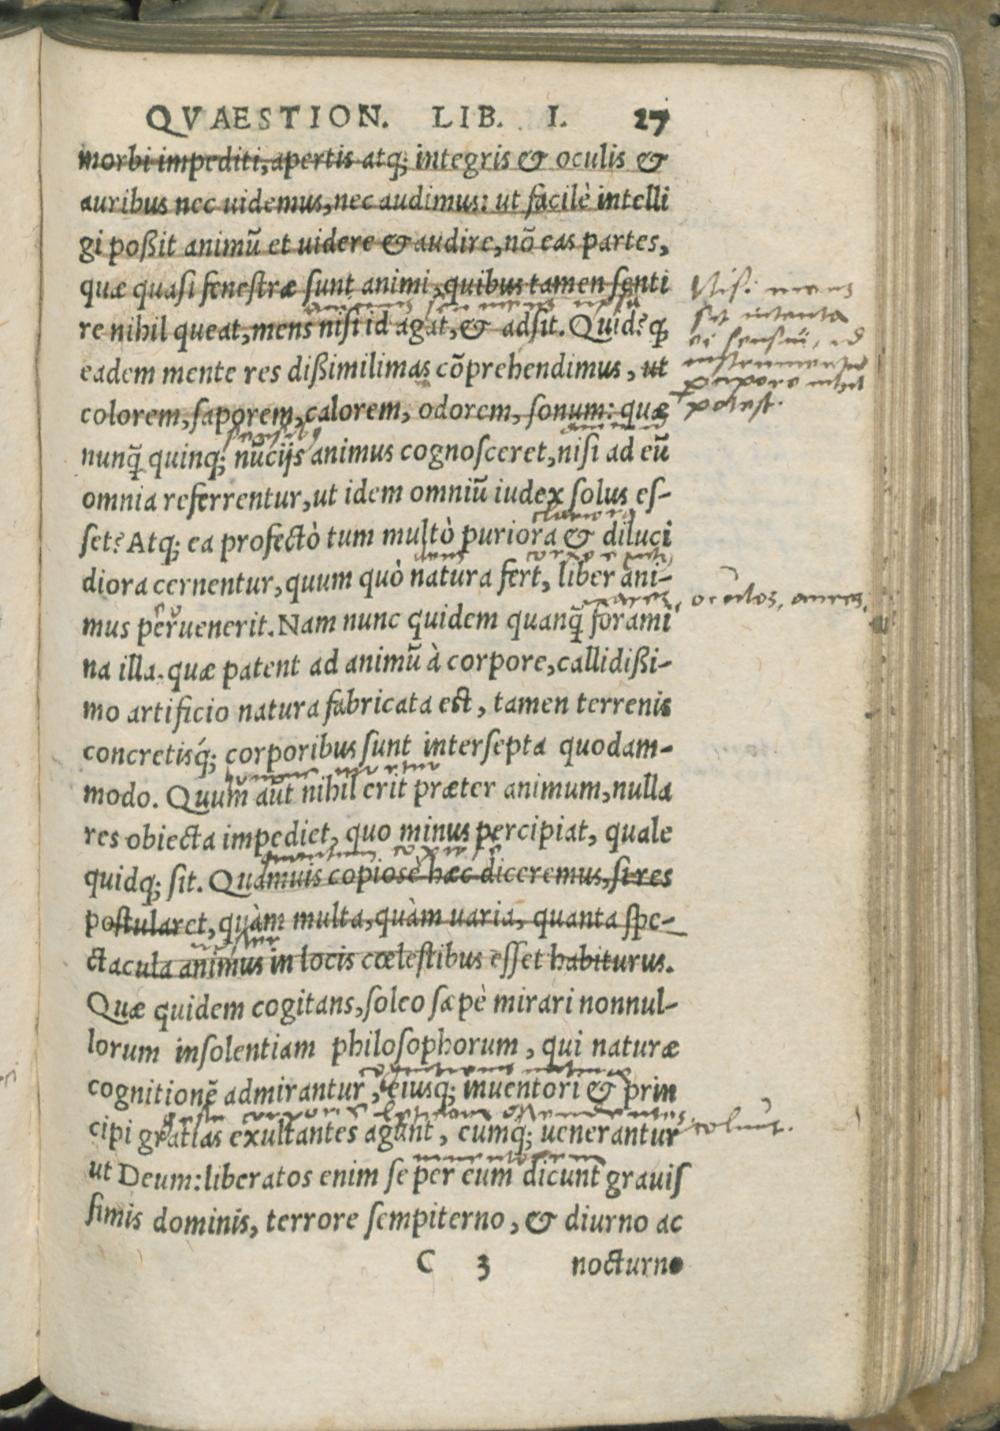 QVAESTION. LIB. I. 27
morbi impediti, apertis atq; integris & oculis &
auribus nec uidemus, nec audimus: ut facilè intelli
gi poßit animũ et uidere & audire, nõ eas partes,
quæ quasi fenestræ sunt animi, quibus tamen senti
animus seu mens ipsa
re nihil queat, mens nisi id agat, & adsit. Quid? q̃
Nisi mens
sit intenta
ei sensui, id
potest.
eadem mente res dißimilimas cõprehendimus, ut
colorem, saporem, calorem, odorem, sonum: quæ
sensibus
animum
nunq̃ quinq; nũcijs animus cognosceret, nisi ad eũ
omnia referrentur, ut idem omniũ iudex solus es-
clariora
set? Atq; ea profectò tum multò puriora & diluci
diora cernentur, quum quò natura fert, liber ani-
nares, oculos, aures,
mus peruenerit. Nam nunc quidem quanq̃ forami
na illa. quæ patent ad animũ à corpore, callidißi-
mo artificio natura fabricata est, tamen terrenis
concretisq́; corporibus sunt intersepta quodam-
homine
modo. Quum aũt nihil erit præter animum, nulla
res obiecta impediet, quo minus percipiat, quale
quantum
quidq; sit. Quamuis copiose hæc diceremus, si res
postularet, quàm multa, quàm uaria, quanta spe-
noster
ctacula animus in locis cœlestibus esset habiturus.
Quæ quidem cogitans, soleo sæpè mirari nonnul-
lorum insolentiam philosophorum, qui naturæ
cognitionis naturæ
cognitionẽ admirantur, eiusq; inuentori & prin
gestu corporis letitiam ostendentes
colunt.
cipi gratias exultantes agunt, eumq; uenerantur
inuentorem
ut Deum: liberatos enim se per eum dicunt grauis
simis dominis, terrore sempiterno, & diurno ac
C 3 nocturno